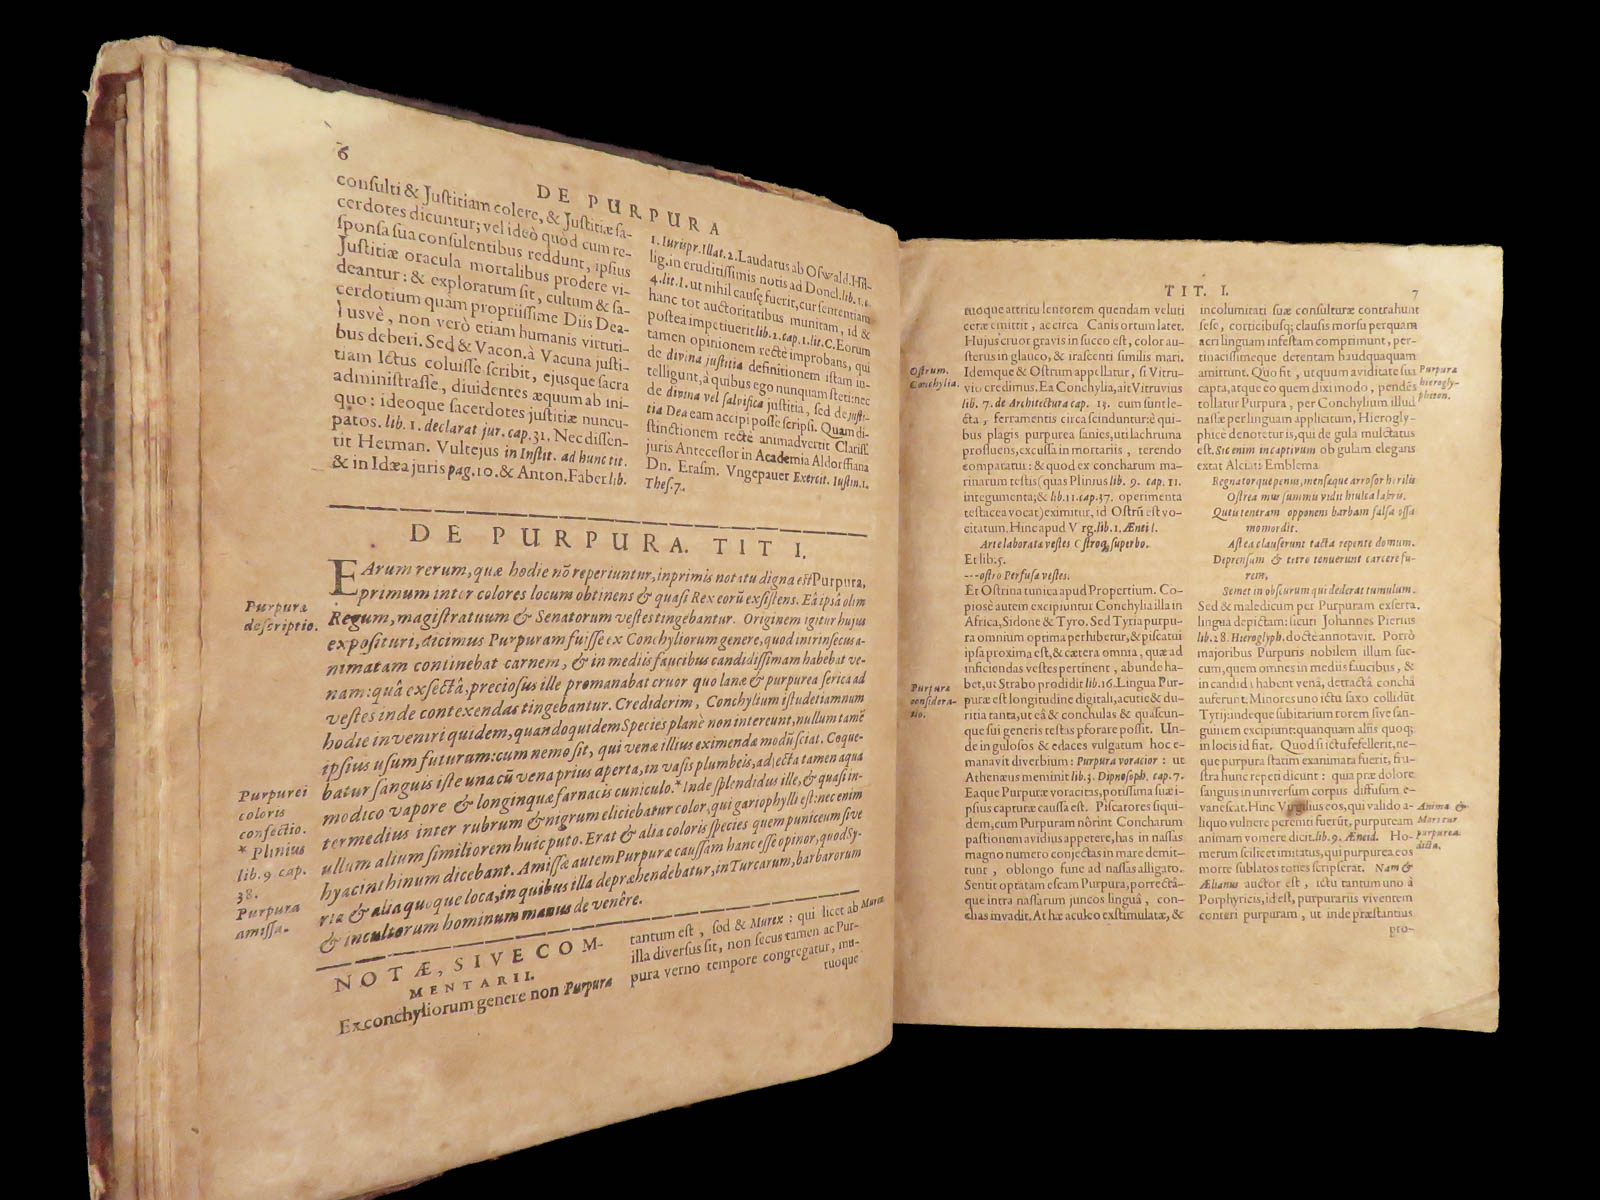 6
DE PURPURA
conſulti & Juſtitiam colere, & Juſtitiæ ſa-
cerdotes dicuntur; vel ideò quòd cum re-
ſponſa ſua conſulentibus reddunt, ipſius
Juſtitiæ oracula mortalibus prodere vi-
deantur: & exploratum ſit, cultum & ſa-
cerdotium quàm propriiſſime Diis Dea-
busvè, non verò etiam humanis virtuti-
bus deberi. Sed & Vacon. à Vacuna juſti-
tiam Ictus coluiſſe ſcribit, ejusque ſacra
adminiſtraſſe, dividentes æquum ab ini-
quo: ideoque ſacerdotes juſtitiæ nuncu-
patos. lib. 1. declarat jur. cap. 31. Nec diſſen-
tit Herman. Vultejus in Inſtit. ad hunc tit.
& in Idæa juris pag. 10. & Anton. Faber lib.
1. Iurispr. Illat. 2. Laudatus ab Oſwald. Hil-
lig. in eruditiſſimis notis ad Donel. lib. 1. c.
4. lit. I. ut nihil cauſę fuerit, cur ſententiam
hanc tot auctoritatibus munitam, id &
poſtea impetiverit lib. 2. cap. 1. lit. C. Eorum
tamen opinionem rectè improbans, qui
de divina juſtitia definitionem iſtam in-
telligunt, à quibus ego nunquam ſteti: nec
de divina vel ſalvifica juſtitia, ſed de juſti-
tia Dea eam accipi poſſe ſcripſi. Quam di-
ſtinctionem rectè animadvertit Clariſſ.
juris Anteceſſor in Academia Aldorffiana
Dn. Eraſm. Vngepauer Exercit. Iuſtin. 1.
Theſ. 7.
DE PURPURA. TIT I.
EArum rerum, quæ hodie nō reperiuntur, inprimis notatu digna eſt Purpura,
primum inter colores locum obtinens & quaſi Rex eorū exſiſtens. Eâ ipſâ olim
Regum, magiſtratuum & Senatorum veſtes tingebantur. Originem igitur hujus
expoſituri, dicimus Purpuram fuiſſe ex Conchyliorum genere, quod intrinſecus a-
nimatam continebat carnem, & in mediis faucibus candidiſſimam habebat ve-
nam: quâ exſectâ, precioſus ille promanabat cruor quo lanæ & purpurea ſerica ad
veſtes inde contexendas tingebantur. Crediderim, Conchylium iſtud etiamnum
hodie inveniri quidem, quandoquidem Species planè non intereunt, nullum tamē
ipſius uſum futurum: cum nemo ſit, qui venæ illius eximendæ modū ſciat. Coque-
batur ſanguis iſte una cū vena prius aperta, in vaſis plumbeis, adjecta tamen aqua
modico vapore & longinquæ farnacis cuniculo.* Inde ſplendidus ille, & quaſi in-
termedius inter rubrum & nigrum eliciebatur color, qui gariophylli eſt: nec enim
ullum alium ſimiliorem huic puto. Erat & alia coloris ſpecies quem puniceum ſive
hyacinthinum dicebant. Amiſſæ autem Purpuræ cauſſam hanc eſſe opinor, quod Sy-
ria & alia quoque loca, in quibus illa depræhendebatur, in Turcarum, barbarorum
& incultorum hominum manus de venêre.
Purpuræ
deſcriptio.
Purpurei
coloris
confectio.
* Plinius
lib. 9 cap.
38.
Purpura
amiſſa.
NOTÆ, SIVE COM-
MENTARII.
Ex conchyliorum genere non Purpura
tantum eſt, ſed & Murex: qui licet ab
illa diverſus ſit, non ſecus tamen ac Pur-
pura verno tempore congregatur, mu-
tuoque
Murex
TIT. I.
7
tuoque attritu lentorem quendam veluti
ceræ emittit, ac circa Canis ortum latet.
Hujus cruor gravis in ſucco eſt, color au-
ſterus in glauco, & iraſcenti ſimilis mari.
Idemque & Oſtrum appellatur, ſi Vitru-
vio credimus. Ea Conchylia, ait Vitruvius
lib. 7. de Architectura cap. 13. cum ſunt le-
cta, ferramentis circa ſcinduntur: è qui-
bus plagis purpurea ſanies, uti lachruma
profluens, excuſſa in mortariis, terendo
comparatur: & quod ex concharum ma-
rinarum teſtis (quas Plinius lib. 9. cap. 11.
integumenta; & lib. 11. cap. 37. operimenta
teſtacea vocat) eximitur, id Oſtrū eſt vo-
citatum. Hinc apud Virg. lib. 1. Æneid.
Arte laborata veſtes oſtroq; ſuperbo.
Et lib. 5.
---oſtro Perfuſa veſtes.
Et Oſtrina tunica apud Propertium. Co-
pioſè autem excipiuntur Conchylia illa in
Africa, Sidone & Tyro. Sed Tyria purpu-
ra omnium optima perhibetur, & piſcatui
ipſa proxima eſt, & cætera omnia, quæ ad
inficiendas veſtes pertinent, abunde ha-
bet, ut Strabo prodidit lib. 16. Lingua Pur-
puræ eſt longitudine digitali, acutie & du-
ritia tanta, ut eâ & conchulas & quaſcun-
que ſui generis teſtas pforare poſſit. Un-
de in guloſos & edaces vulgatum hoc e-
manavit diverbium: Purpura voracior: ut
Athenæus meminit lib. 3. Dipnoſoph. cap. 7.
Eaque Purpuræ voracitas, potiſſima ſuæ i-
pſius capturæ cauſſa eſt. Piſcatores ſiqui-
dem, cum Purpuram nôrint Concharum
paſtionem avidius appetere, has in naſſas
magno numero conjectas in mare demit-
tunt, oblongo fune ad naſſas alligato.
Sentit optatam eſcam Purpura, porrectâ-
que intra naſſarum juncos linguâ, con-
chas invadit. At hæ aculeo exſtimulatæ, &
Oſtrum.
Conchylia.
Purpura
conſidera-
tio.
incolumitati ſuæ conſulturæ contrahunt
ſeſe, corticibuſq; clauſis morſu perquam
acri linguam infeſtam comprimunt, per-
tinaciſſimeque detentam haudquaquam
amittunt. Quo fit, ut quum aviditate ſua
capta, atque eo quem dixi modo, pendēs
tollatur Purpura, per Conchylium illud
naſſæ per linguam applicitum, Hierogly-
phicè denoteturis, qui de gula mulctatus
eſt. Sic enim in captivum ob gulam elegans
extat Alciati Emblema
Regnatorque penus, menſæque arroſor herilis
Oſtrea mus ſummis vidit hiulca labris.
Queis teneram opponens barbam falſa oſſa
momordit.
Aſt ea clauſerunt tacta repente domum.
Deprenſum & tetro tenuerunt carcere fu-
rem,
Semet in obſcurum qui dederat tumulum.
Sed & maledicum per Purpuram exſerta
lingua depictam: ſicuti Johannes Pierius
lib. 28. Hieroglyph. doctè annotavit. Porrò
majoribus Purpuris nobilem illum ſuc-
cum, quem omnes in mediis faucibus, &
in candidiſ habent venâ, detractâ conchâ
auferunt. Minores uno ictu ſaxo collidūt
Tyrij: indeque ſubitarium rorem ſive ſan-
guinem excipiunt: quanquam aliis quoq;
in locis id fiat. Quod ſi ictu fefellerit, ne-
que purpura ſtatim exanimata fuerit, fru-
ſtra hunc repeti dicunt: quia præ dolore
ſanguis in univerſum corpus diffuſum e-
vaneſcat. Hinc Virgilius eos, qui valido a-
liquo vulnere peremti fuerūt, purpuream
animam vomere dicit. lib. 9. Æneid. Ho-
merum ſcilicet imitatus, qui purpurea eos
morte ſublatos toties ſcripſerat. Nam &
Ælianus auctor eſt, ictu tantum uno à
Porphyricis, id eſt, purpurariis viventem
conteri purpuram, ut inde præſtantius
pro-
Purpura
hierogly-
phicon.
Anima &
Mors cur
purpurea
dicta.